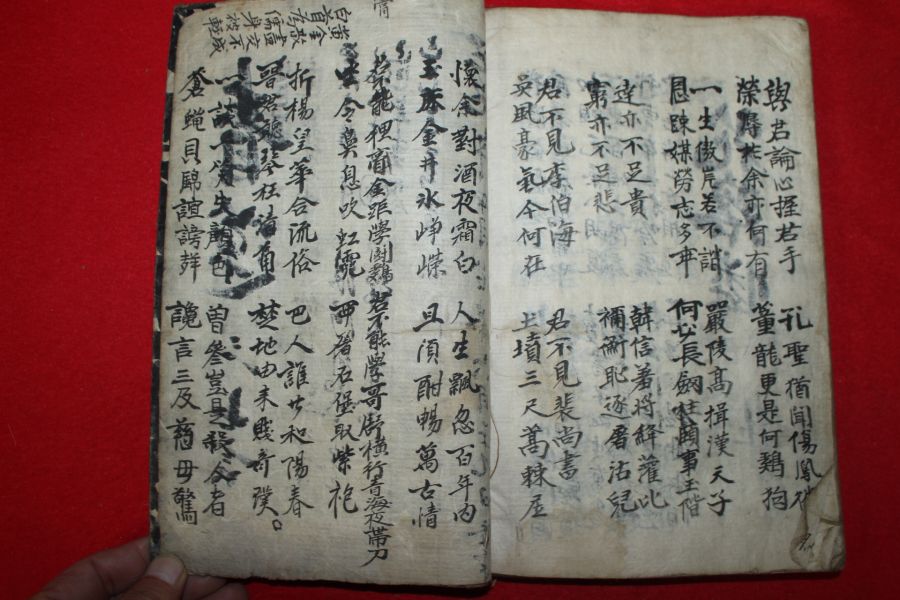 與君論心握君手 孔聖猶聞傷鳳
榮辱於余亦何有 董龍更是何鷄狗
一生傲岸苦不諧 嚴陵高揖漢天子
恩疎媒勞志多乖 何必長劍拄頤事玉階
達亦不足貴 韓信羞將絳灌比
窮亦不足悲 禰衡耻逐屠沽兒
君不見李伯海 君不見裴尚書
英風豪氣今何在 土墳三尺蒿棘居
懷余對酒夜霜白 人生飄忽百年內
玉床金井氷崢嶸 且須酣暢萬古情
君不能狸膏金距學鬪鷄 君不能學哥舒橫行青海夜帶刀
坐令鼻息吹虹霓 西屠石堡取紫袍
折楊皇華合流俗 巴人誰肯和陽春
晉君聽琴枉清角 楚地由來賤奇璞
一談一笑失顏色 曾參豈是殺人者
蒼蠅貝錦喧謗聲 讒言三及慈母驚
黃金散盡交不成
白首爲儒身被輕